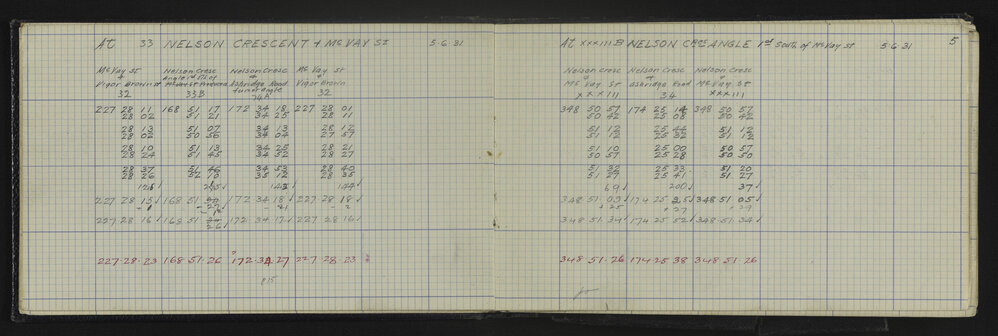 At 33 Nelson Crescent + McVay St 5·6·31
McVay St Nelson Cresc Nelson Cresc McVay St
+ Angle 1st Sth of + +
Vigor Brown St McVay St Produced Ashridge Road Vigor Brown
32 33B 34B 32
227 28 11 168 51 17 172 34 18 227 28 01
28 02 51 21 34 25 28 11
28 13 51 07 34 13 28 12
28 02 50 56 34 04 27 57
28 10 51 13 34 25 28 21
28 24 51 45 34 32 28 27
28 37 51 46 34 53 28 40
28 26 52 10 35 12 28 35
144
227 28 15 168 51 172 34 18 227 28 18
227 28 16 168 51 26 172 34 17 227 28 16
227·28·23 168·51·26 172·34·27 227·28·23
p15
At XXXIIIB Nelson Cres Angle 1st South of McVay St 5·6·31 5
Nelson Cresc Nelson Cresc Nelson Cresc
+ + +
McVay St Ashridge Road McVay St
XXXIII 34 XXXIII
348 50 57 174 25 14 348 50 57
50 42 25 08 50 42
51 12 25 44 51 12
51 12 25 32 51 12
51 10 25 00 50 57
50 57 25 28 50 50
51 32 25 33 51 20
51 27 25 41 51 27
69 200 37
348 51 09 174 25 25 348 51 05
+ 25 + 27 + 29
348 51 34 174 25 52 348·51·34
348·51·26 174·25·38 348·51·26